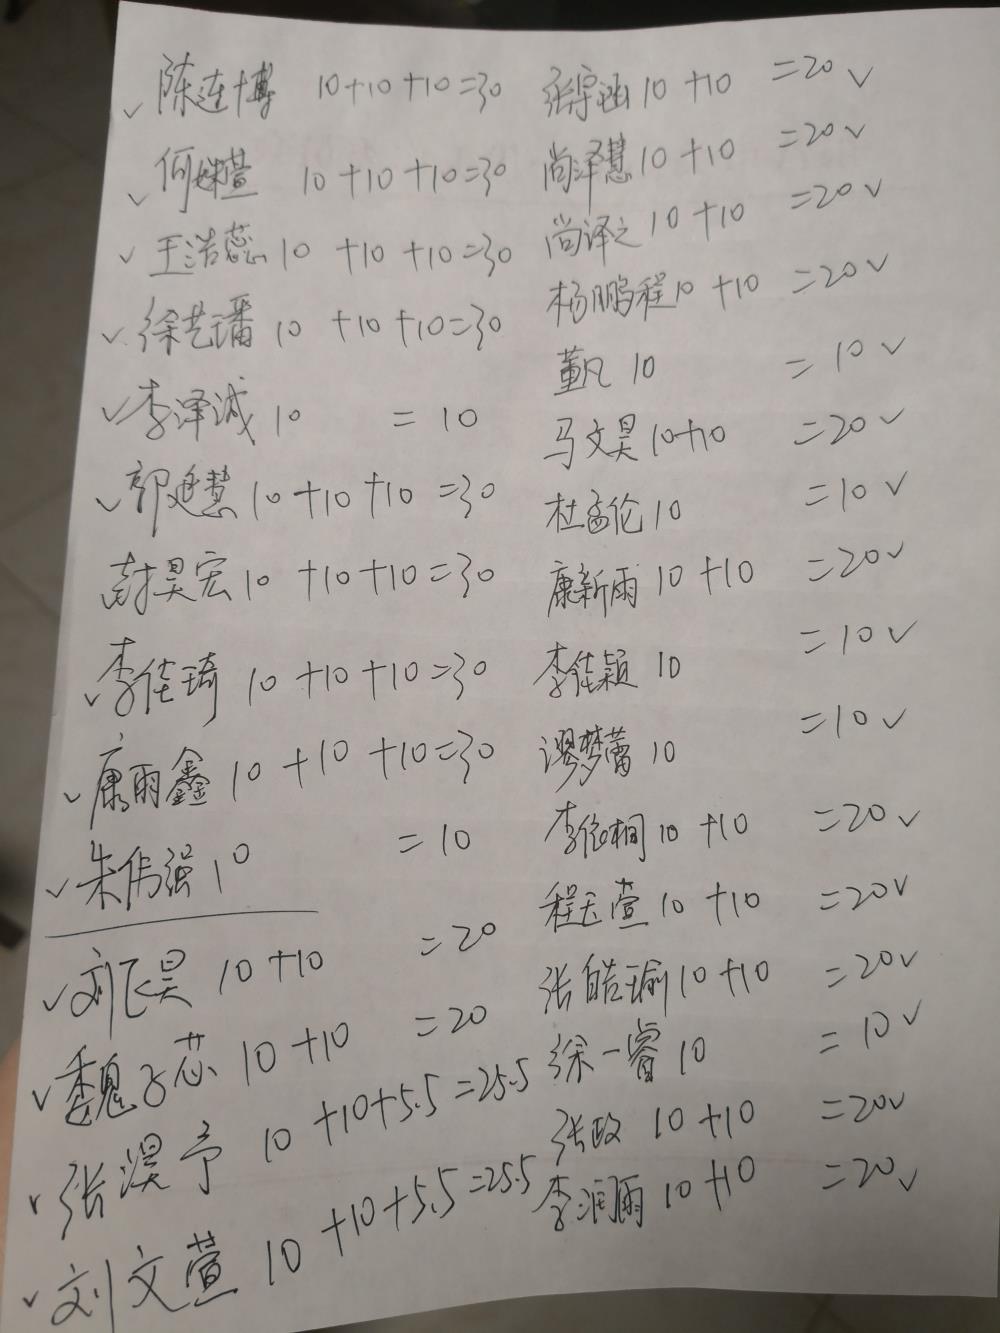 ✓ 陈连博 10+10+10=30
✓ 何姝萱 10+10+10=30
✓ 王浩蕊 10+10+10=30
✓ 徐艺璠 10+10+10=30
✓ 李泽诚 10 =10
✓ 郭延慧 10+10+10=30
昊宏 10+10+10=30
✓ 李佳琦 10+10+10=30
✓ 康雨鑫 10+10+10=30
✓ 朱伟强 10 =10
✓ 刘飞昊 10+10 =20
✓ 魏子芯 10+10 =20
✓ 张淏予 10+10+5.5=25.5
✓ 刘文萱 10+10+5.5=25.5
张宇涵 10+10 =20 ✓
尚泽慧 10+10 =20 ✓
尚译之 10+10 =20 ✓
杨鹏程 10+10 =20 ✓
董凡 10 =10 ✓
马文昊 10+10 =20 ✓
杜孟伦 10 =10 ✓
康新雨 10+10 =20 ✓
李佳颖 10 =10 ✓
谬梦蕾 10 =10 ✓
李桐 10+10 =20 ✓
程玉萱 10+10 =20 ✓
张皓瑜 10+10 =20 ✓
徐一睿 10 =10 ✓
张政 10+10 =20 ✓
李润雨 10+10 =20 ✓